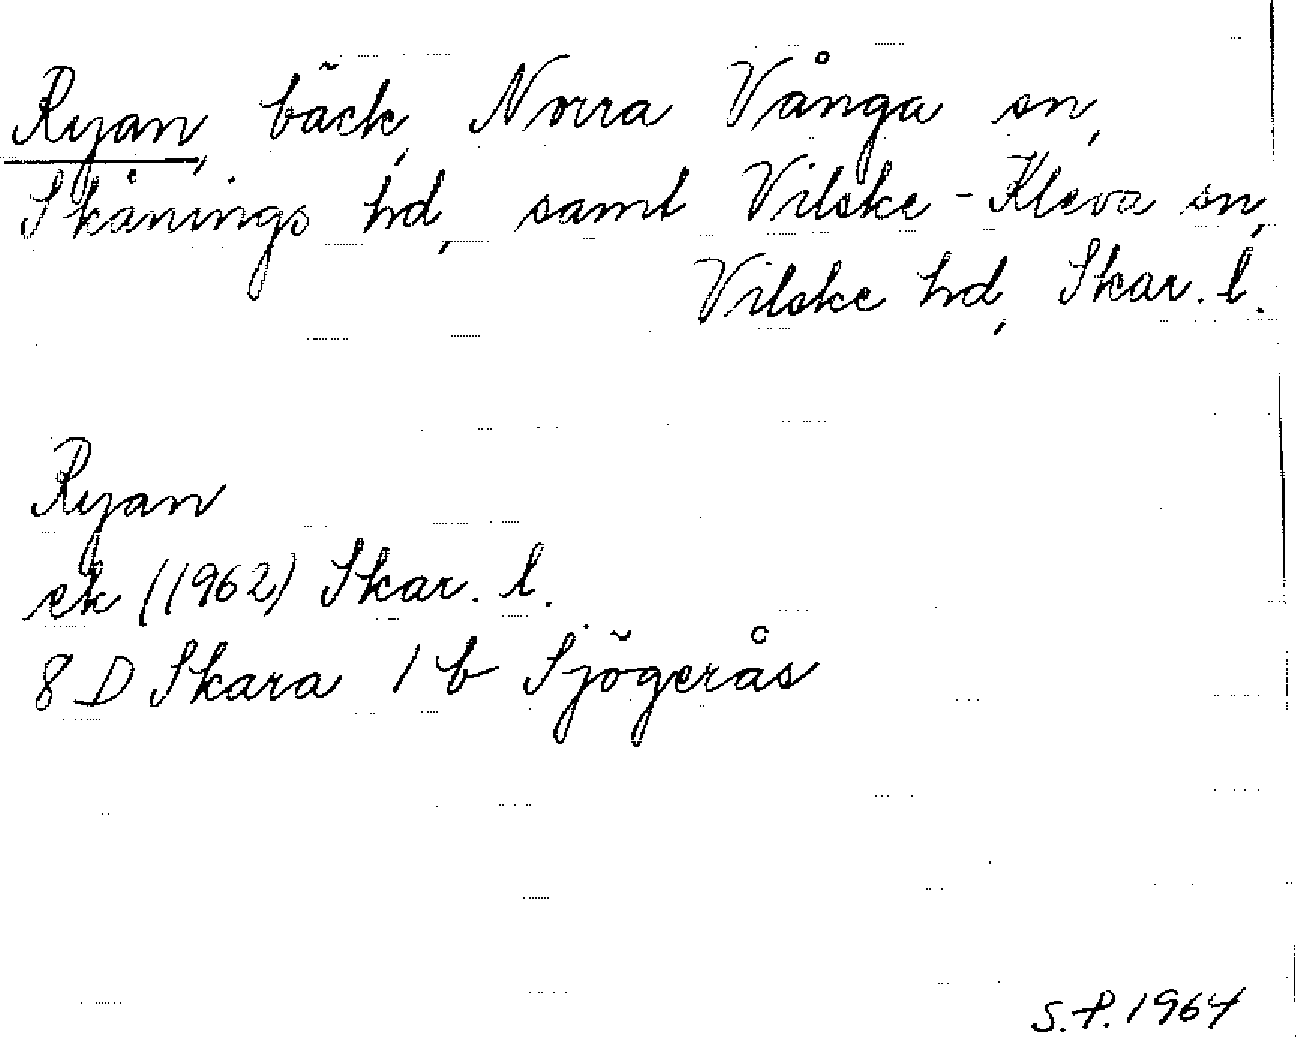 Ryan, bäck, Norra Vånga sn,
Skånings hd, samt Vilske-Kleva sn,
Vilske hd, Skar. l.
Ryan
ek (1962) Skar. l.
8 D Skara 1 b Sjögerås
S.P. 1964